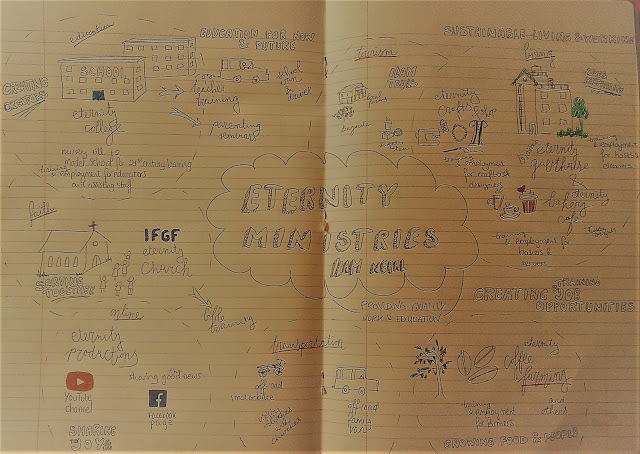 education
EDUCATION FOR NOW
& FUTURE
CREATING
SCHOOL
teacher
training
school
run
& travel
eternity
college
parenting
seminars
nursery till 12
model school for 21st century learning
training
employment for educators
and assisting staff
faith
IFGF
eternity
church
SERVING
TOGETHER
life
training
online
eternity
productions
YouTube
channel
sharing good news
Facebook
page
SHARING
JOY
ETERNITY
MINISTRIES
PROVIDING QUALITY
WORK & EDUCATION
tourism
TOURS
eternity
crafts
training
& employment
for
designers
SUSTAINABLE LIVING & WORKING
living
eternity
guesthouse
training
& employment
for hosts &
cleaners
eternity
bakery
cafe
training
& employment for
bakers &
servers
TRAINING
CREATING JOB
OPPORTUNITIES
transportation
off-road
off-road
family
van
eternity
coffee
farming
training
& employment
for farmers
and
others
GROWING FOOD & PEOPLE